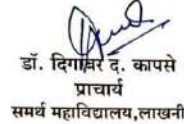 डॉ. दिगांबर द. कापसे
प्राचार्य
समर्थ महाविद्यालय,लाखनी